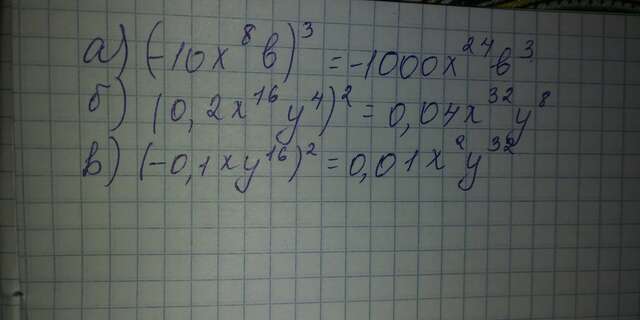 а) (-10x⁸b)³ = -1000x²⁴b³
б) (0,2x¹⁶y⁴)² = 0,04x³²y⁸
в) (-0,1xy¹⁶)² = 0,01x²y³²